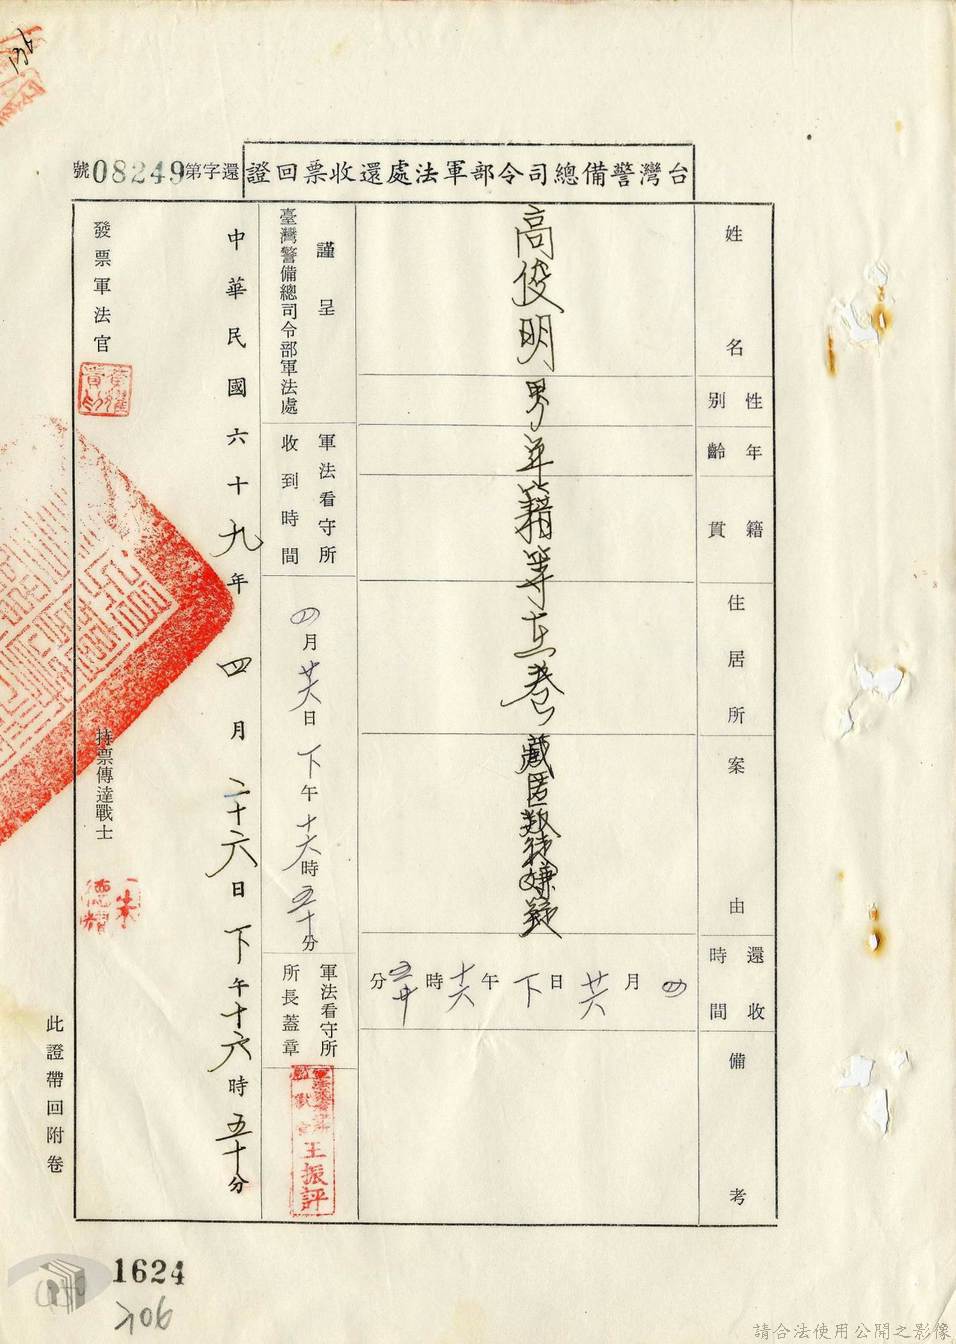 台灣警備總司令部軍法處還收票回證
還字第08249號
姓名
高俊明
性別
男
年齡
籍貫
年籍等在卷
住居所
案由
藏匿叛徒嫌疑
還收時間
四月廿六日下午十六時五十分
備考
謹呈
臺灣警備總司令部軍法處
軍法看守所
收到時間
四月廿六日下午十六時五十分
軍法看守所
所長蓋章
王振評
中華民國六十九年四月二十六日下午十六時五十分
發票軍法官
持票傳達戰士
此證帶回附卷
1624
206
請合法使用公開之影像